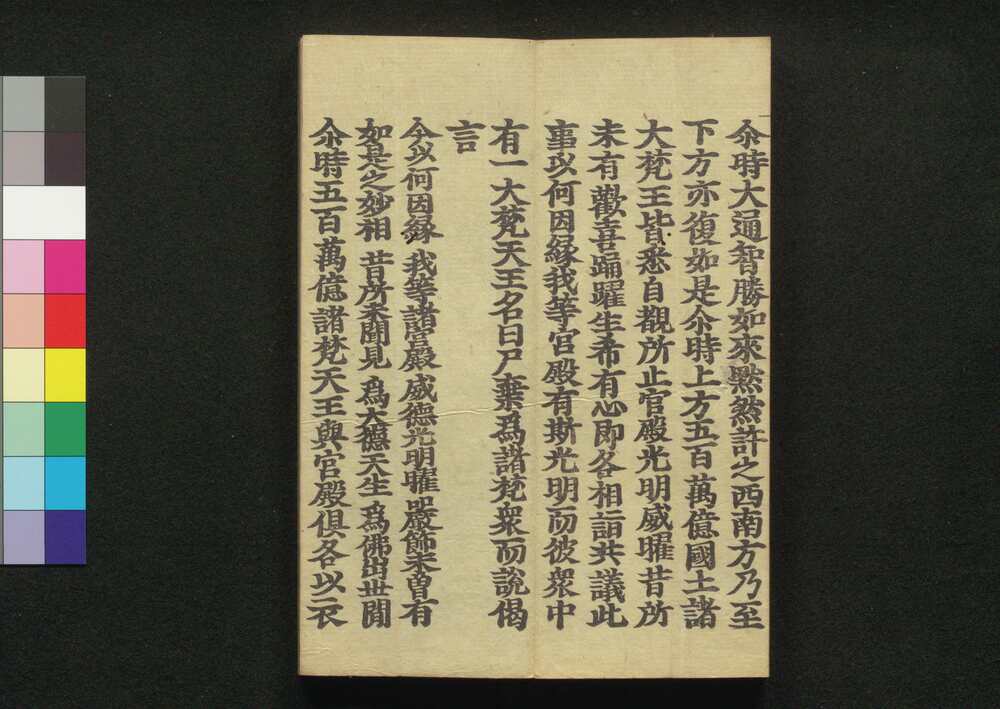 尒時大通智勝如來黙然許之西南方乃至
下方亦復如是尒時上方五百萬億國土諸
大梵王皆悉自覩所止宮殿光明威曜昔所
未有歡喜踊躍生希有心即各相詣共議此
事以何因緣我等宮殿有斯光明而彼衆中
有一大梵天王名曰尸棄爲諸梵衆而說偈
言
今以何因緣 我等諸宮殿 威德光明曜 嚴飾未曾有
如是之妙相 昔所未聞見 爲大德天生 爲佛出世間
尒時五百萬億諸梵天王與宮殿俱各以衣